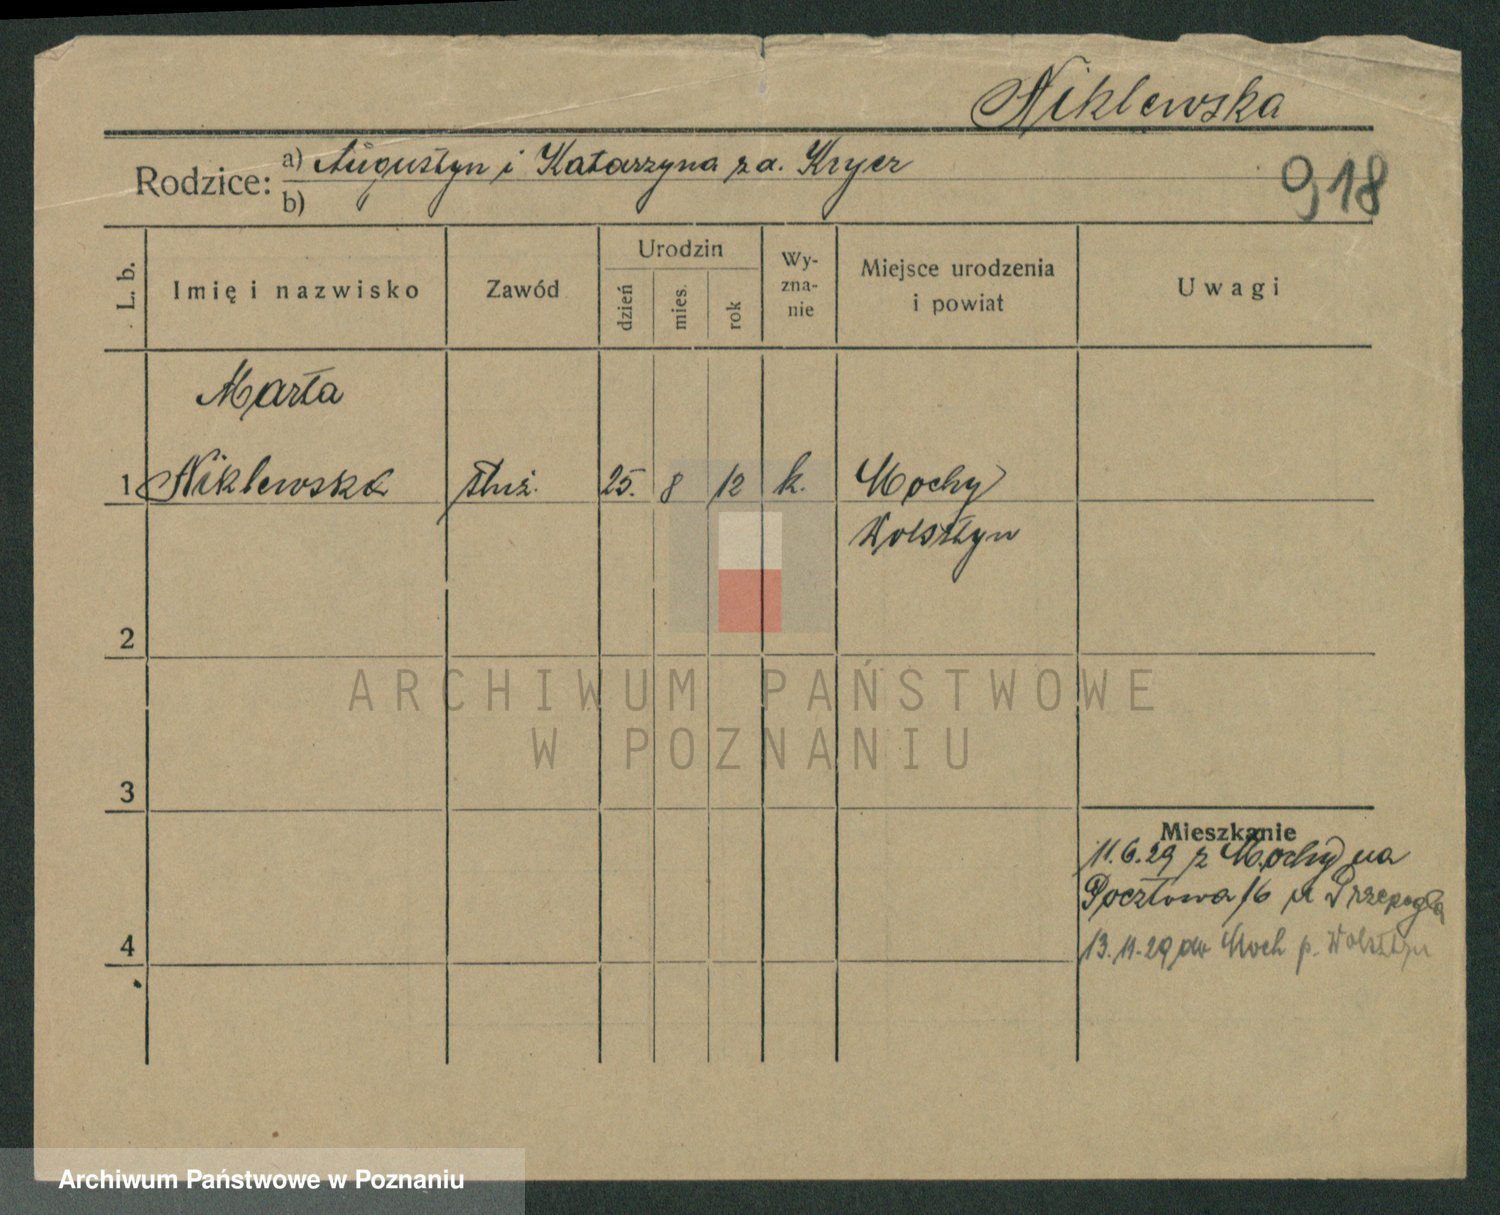 Niklewska
Rodzice: a) Augustyn i Katarzyna z d. Kryer
918
b)
L. b. Imię i nazwisko Zawód Urodzin dzień mies. rok Wy-zna-nie Miejsce urodzenia i powiat Uwagi
Marta
1 Niklewska służ. 25. 8 12 k. Mochy
Wolsztyn
2
ARCHIWUM PAŃSTWOWE
W POZNANIU
3
Mieszkanie
11.6.29 z Mochy na
Pocztowa 16 u
4
13.11.29 do Moch p. Wolsztyn
Archiwum Państwowe w Poznaniu